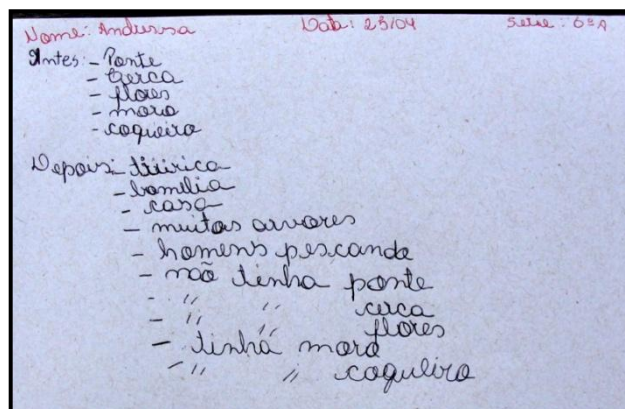 Nome: Andressa Data: 23/04 Série: 6ª A
Antes: - Ponte
- Cerca
- flores
- moro
- coqueiro
Depois: tiririca
- bomilia
- casa
- muitas arvores
- homens pescando
- não tinha ponte
- " " cerca
- " " flores
- tinha moro
- " " coqueiro